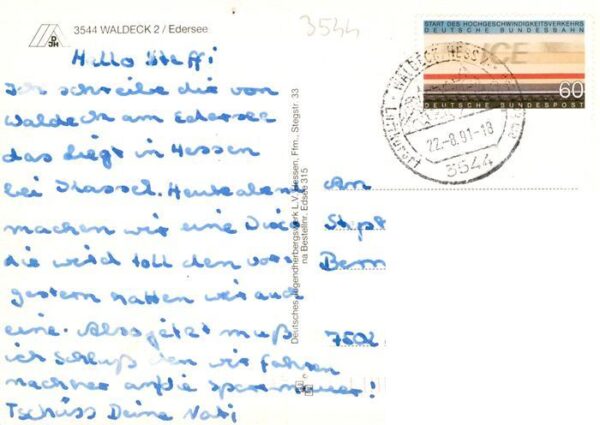 3544 WALDECK 2 / Edersee
DJH
3544
Hallo Steffi
Ich schreibe dir von
Waldeck am Edersee
das liegt in Hessen
bei Kassel. Heute abend
machen wir eine Disco
die wird toll den vor-
gestern hatten wir auch
eine. Also jetzt muß
ich schluß den wir fahren
nachher an die sperrmauer!
Tschüss Deine Nati
Deutsches Jugendherbergswerk L.V. Hessen, Ffm., Stegstr. 33
na Bestellnr. Edsee 315
START DES HOCHGESCHWINDIGKEITSVERKEHRS
DEUTSCHE BUNDESBAHN
ICE
60
DEUTSCHE BUNDESPOST
WALDECK, HESS
22.-8.91-18
3544
An
Steph
Bern
7502